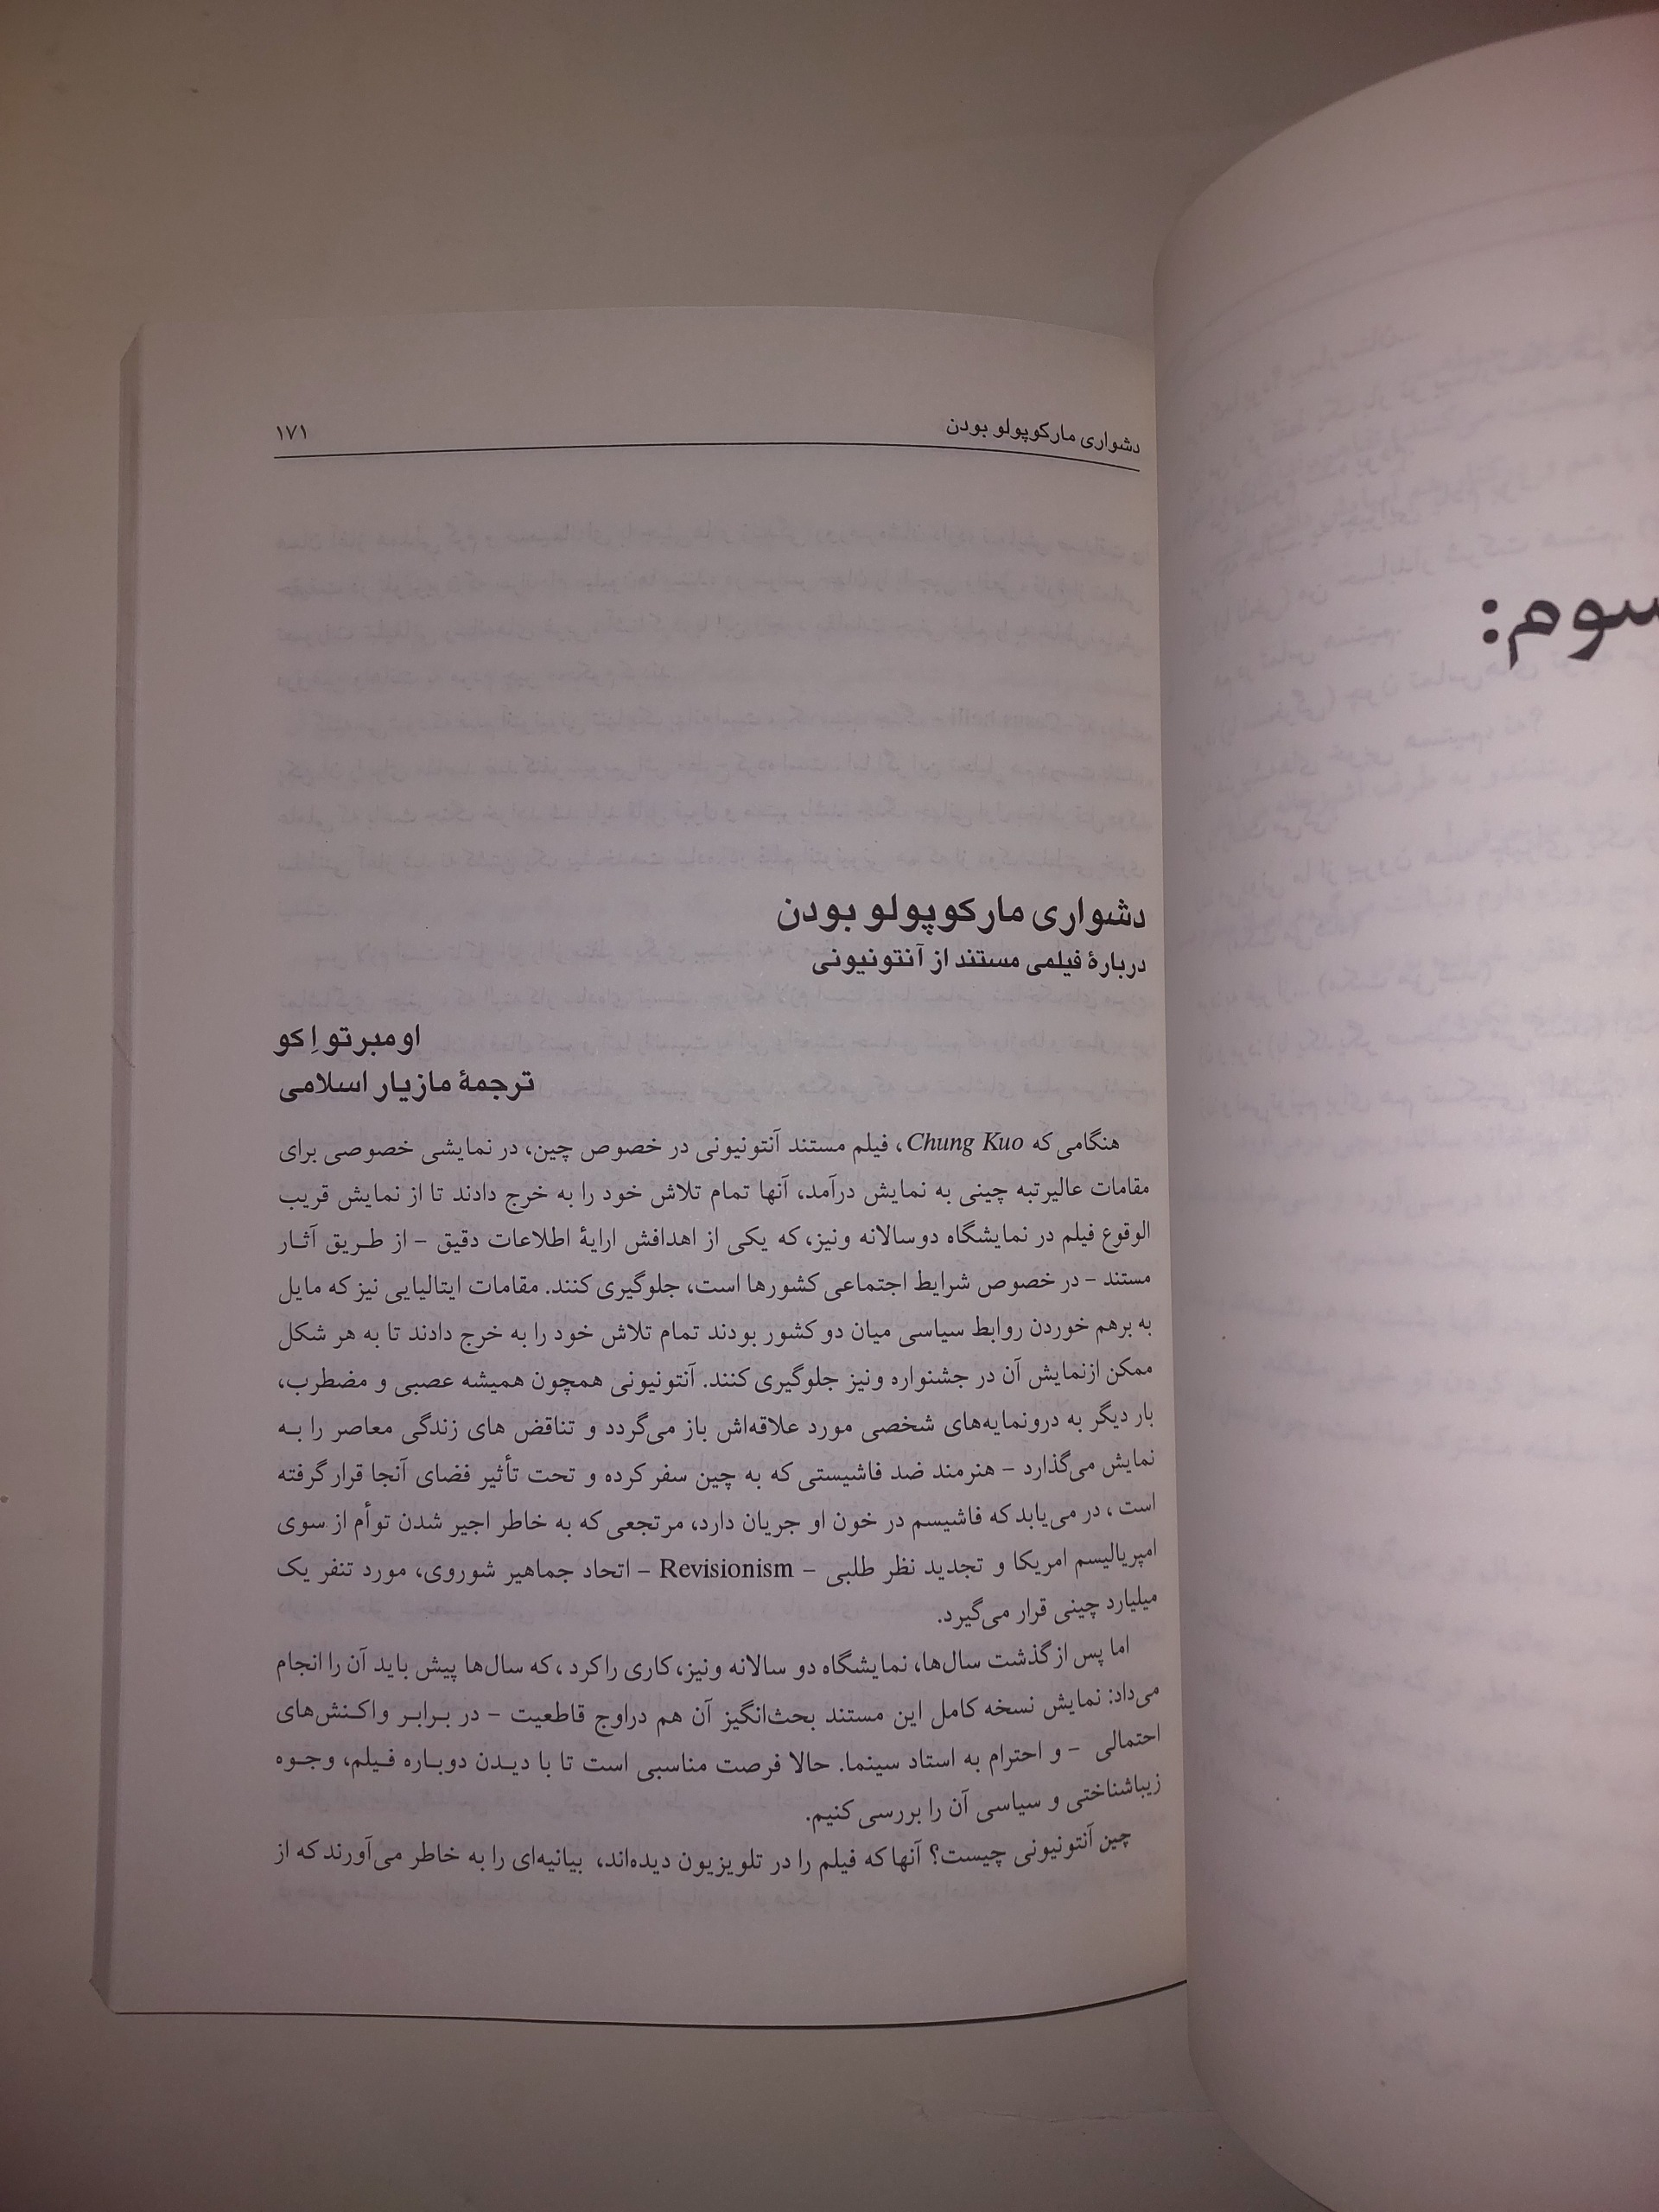 دشواری مارکوپولو بودن ۱۷۱
دشواری مارکوپولو بودن
دربارهٔ فیلمی مستند از آنتونیونی
اومبرتو اِکو
ترجمهٔ مازیار اسلامی
هنگامی که Chung Kuo، فیلم مستند آنتونیونی در خصوص چین، در نمایشی خصوصی برای
مقامات عالیرتبه چینی به نمایش درآمد، آنها تمام تلاش خود را به خرج دادند تا از نمایش قریب
الوقوع فیلم در نمایشگاه دوسالانه ونیز، که یکی از اهدافش ارایهٔ اطلاعات دقیق – از طریق آثار
مستند – در خصوص شرایط اجتماعی کشورها است، جلوگیری کنند. مقامات ایتالیایی نیز که مایل
به برهم خوردن روابط سیاسی میان دو کشور بودند تمام تلاش خود را به خرج دادند تا به هر شکل
ممکن ازنمایش آن در جشنواره ونیز جلوگیری کنند. آنتونیونی همچون همیشه عصبی و مضطرب،
بار دیگر به درونمایه‌های شخصی مورد علاقه‌اش باز می‌گردد و تناقض های زندگی معاصر را به
نمایش می‌گذارد – هنرمند ضد فاشیستی که به چین سفر کرده و تحت تأثیر فضای آنجا قرار گرفته
است، در می‌یابد که فاشیسم در خون او جریان دارد، مرتجعی که به خاطر اجیر شدن توأم از سوی
امپریالیسم امریکا و تجدید نظر طلبی – Revisionism – اتحاد جماهیر شوروی، مورد تنفر یک
میلیارد چینی قرار می‌گیرد.
اما پس از گذشت سال‌ها، نمایشگاه دو سالانه ونیز، کاری را کرد، که سال‌ها پیش باید آن را انجام
می‌داد: نمایش نسخه کامل این مستند بحث‌انگیز آن هم دراوج قاطعیت – در برابر واکنش‌های
احتمالی – و احترام به استاد سینما. حالا فرصت مناسبی است تا با دیدن دوباره فیلم، وجوه
زیباشناختی و سیاسی آن را بررسی کنیم.
چین آنتونیونی چیست؟ آنها که فیلم را در تلویزیون دیده‌اند، بیانیه‌ای را به خاطر می‌آورند که از
سوم: